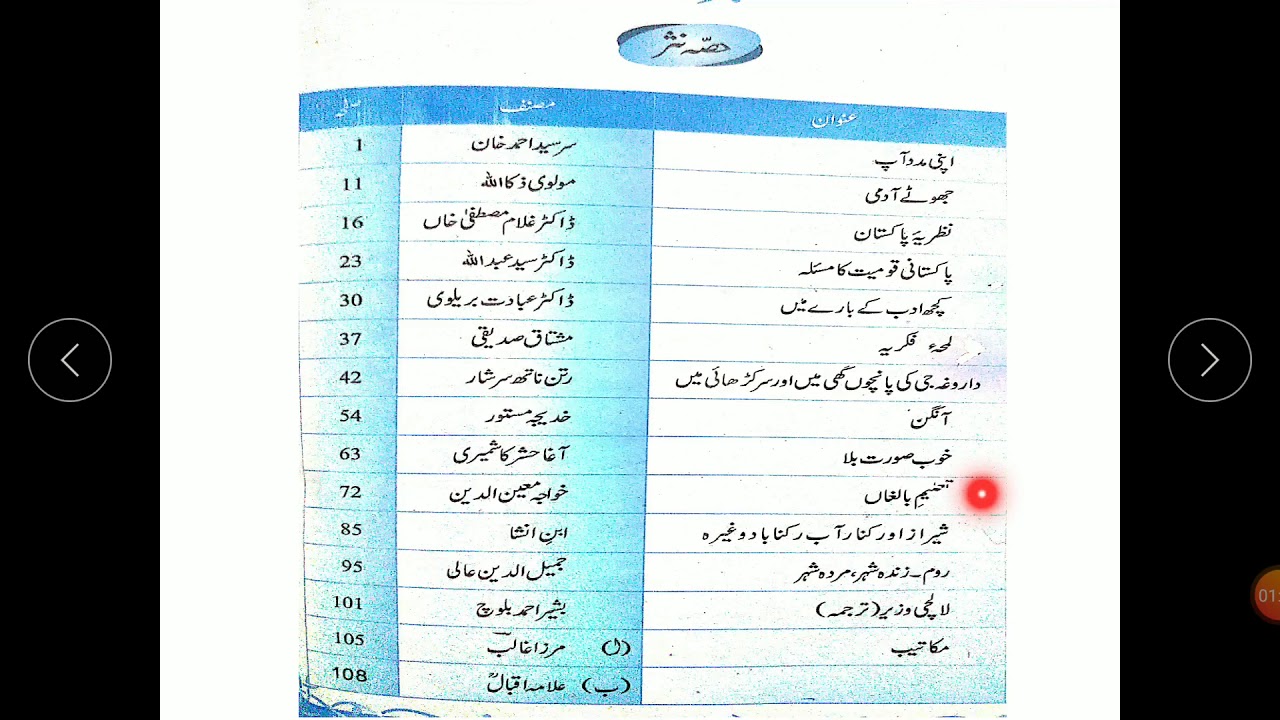 حصّہ نثر
عنوان مصنف صفحہ
اپنی مدد آپ سرسید احمد خان 1
جھوٹے آدمی مولوی ذکا اللہ 11
نظریۂ پاکستان ڈاکٹر غلام مصطفیٰ خاں 16
پاکستانی قومیت کا مسئلہ ڈاکٹر سید عبد اللہ 23
کچھ ادب کے بارے میں ڈاکٹر عبادت بریلوی 30
لمحۂ فکریہ مشتاق صدیقی 37
داروغہ جی کی پانچوں گھی میں اور سر کڑھائی میں رتن ناتھ سرشار 42
آنگن خدیجہ مستور 54
خوب صورت بلا آغا حشر کاشمیری 63
تعلیمِ بالغاں خواجہ معین الدین 72
شیراز اور کنار آب رکنا باد وغیرہ ابنِ انشا 85
روم۔ زندہ شہر، مردہ شہر جمیل الدین عالی 95
لالچی وزیر (ترجمہ) بشیر احمد بلوچ 101
مکاتیب (ا) مرزا غالبؔ 105
(ب) علامہ اقبالؒ 108
01: